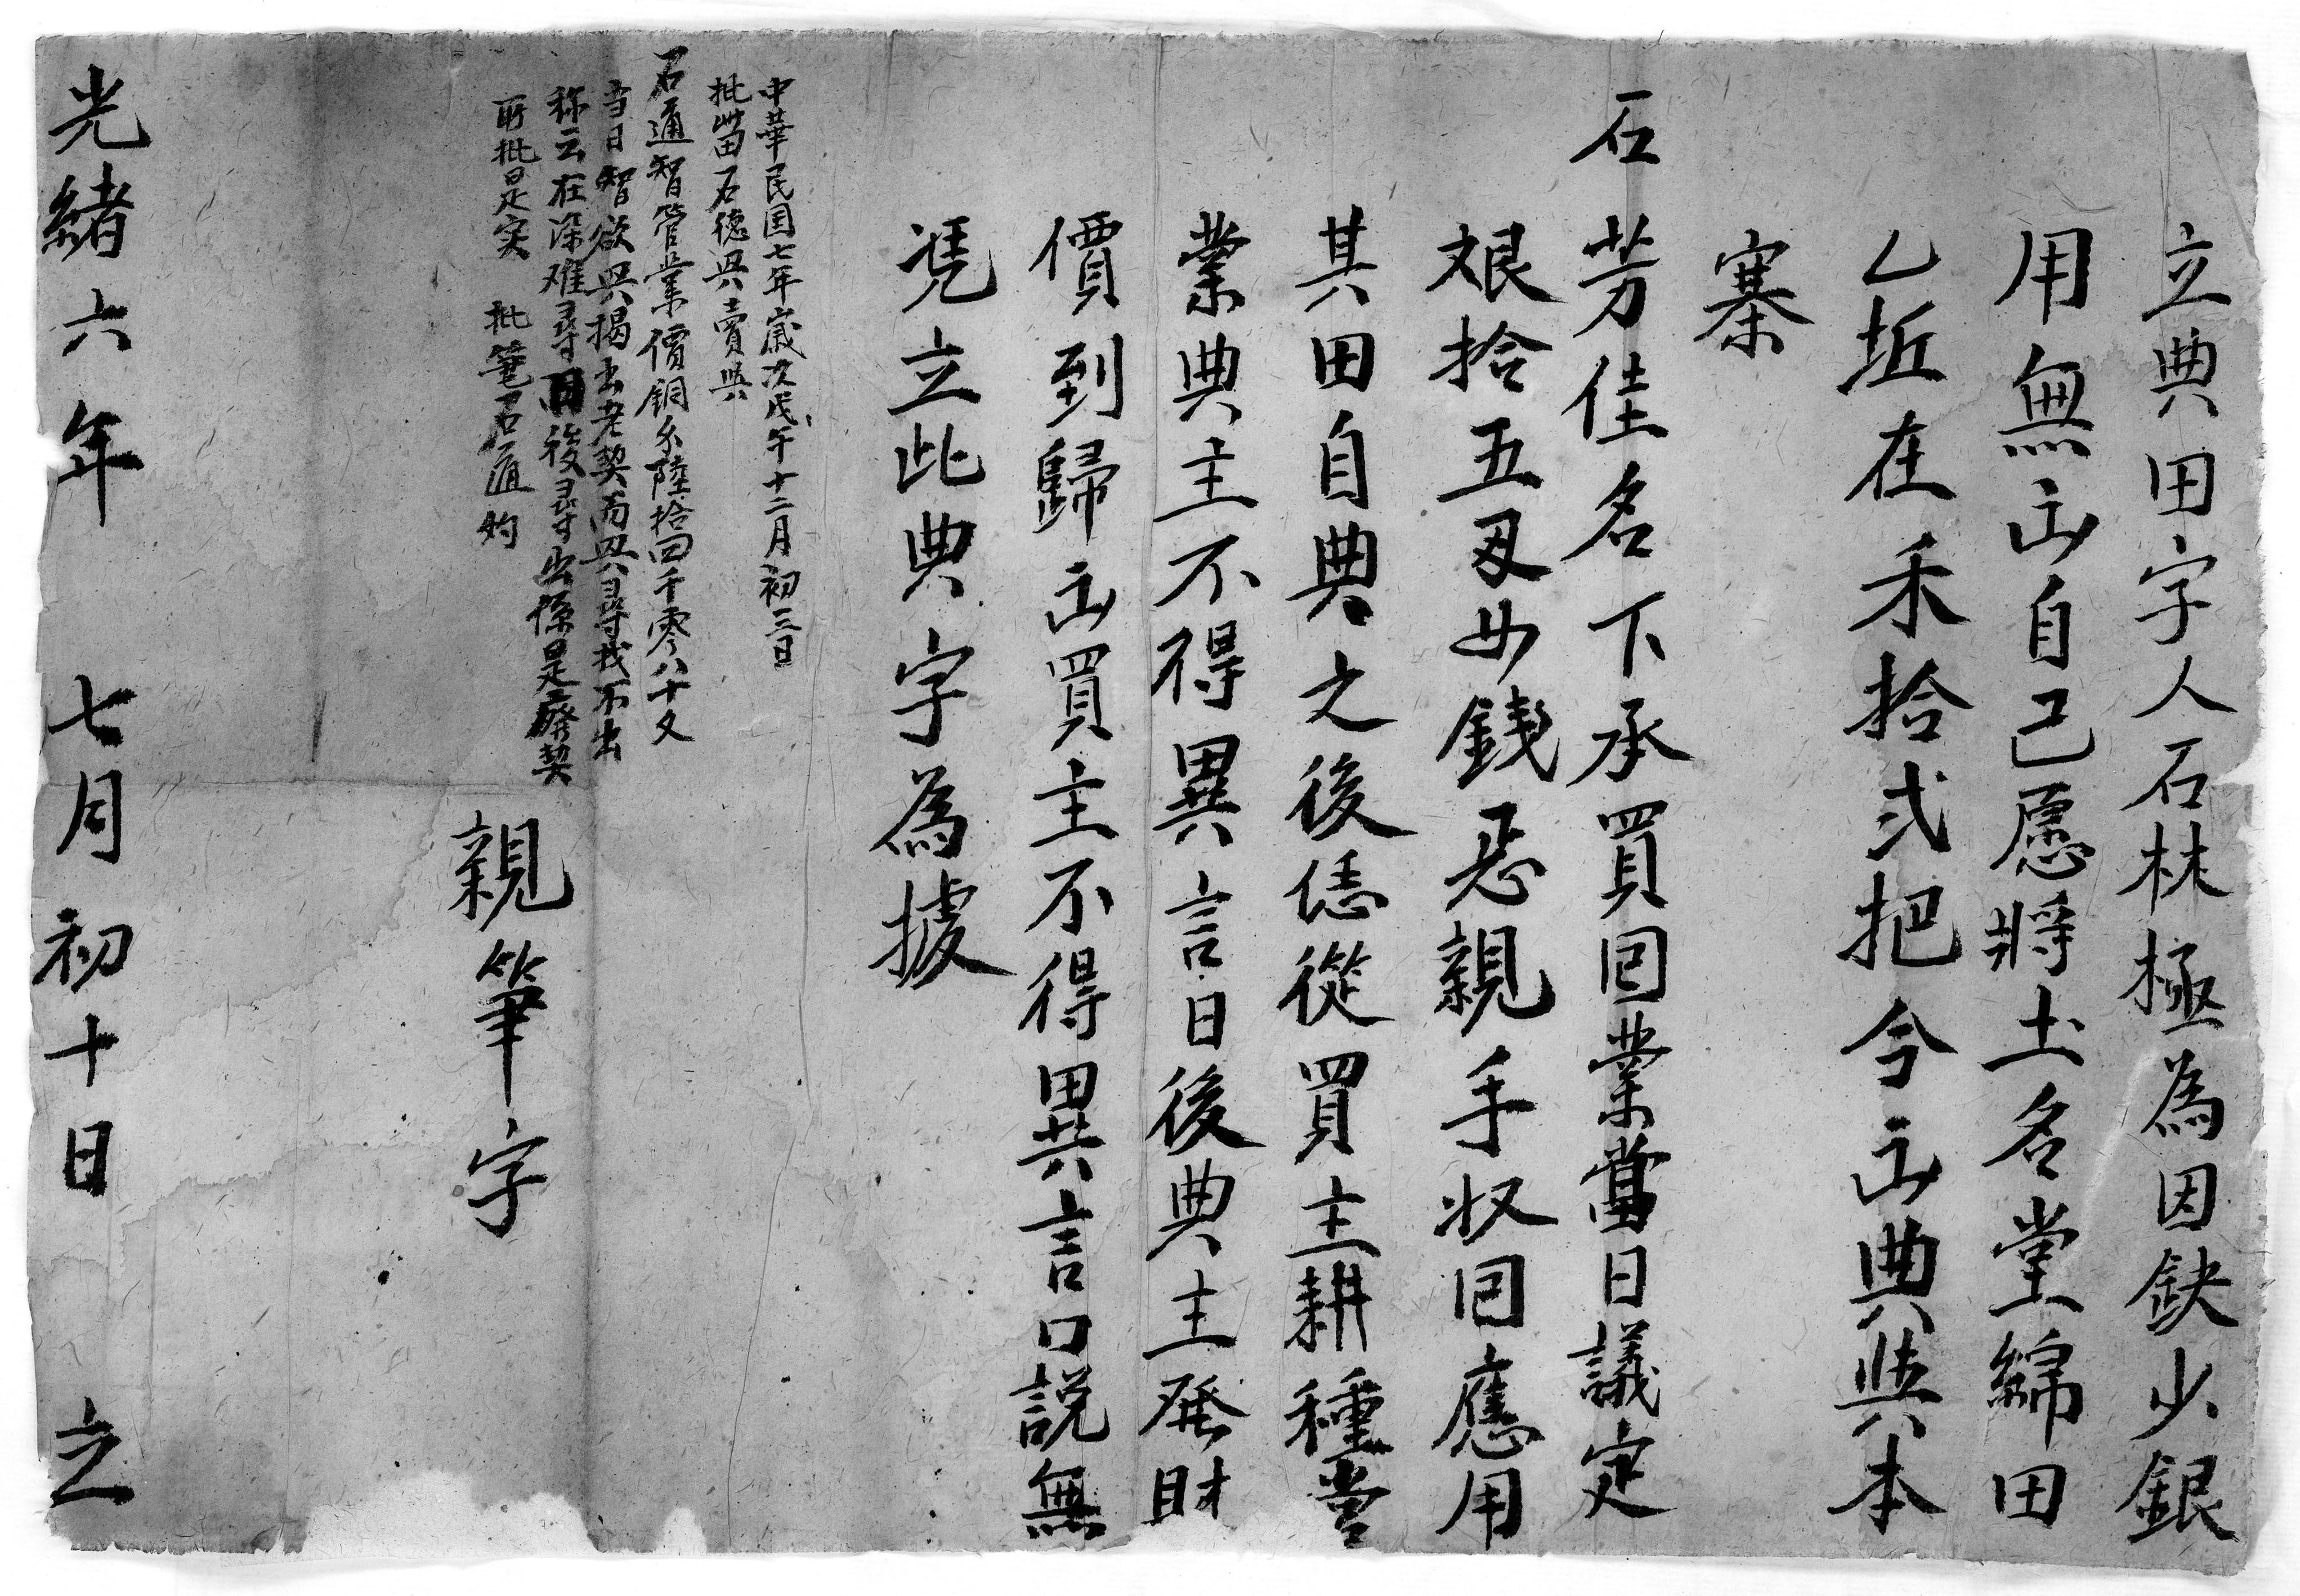 立典田字人石林極為因鈌少銀
用無出自己愿將土名堂綿田
乙坵在禾拾弍把今出典與本
寨
石芳佳名下承買回業當日議定
艮拾五刄 錢 親手收回應用
其田自典之後恁從買主耕種営
業典主不得異言日後典主発財
價到歸出買主不得異言口説無
凴立此典字為據
中華民国七年歲次戊午十二月初三日
批 石德興賣與
石通智管業價銅 陸拾四千零八十文
当日智欲興揭出老契而興尋找不出
称云在深难尋日後尋出係是廢契
所批是实 批筆石通灼
親筆字
光緒六年 七月初十日 立